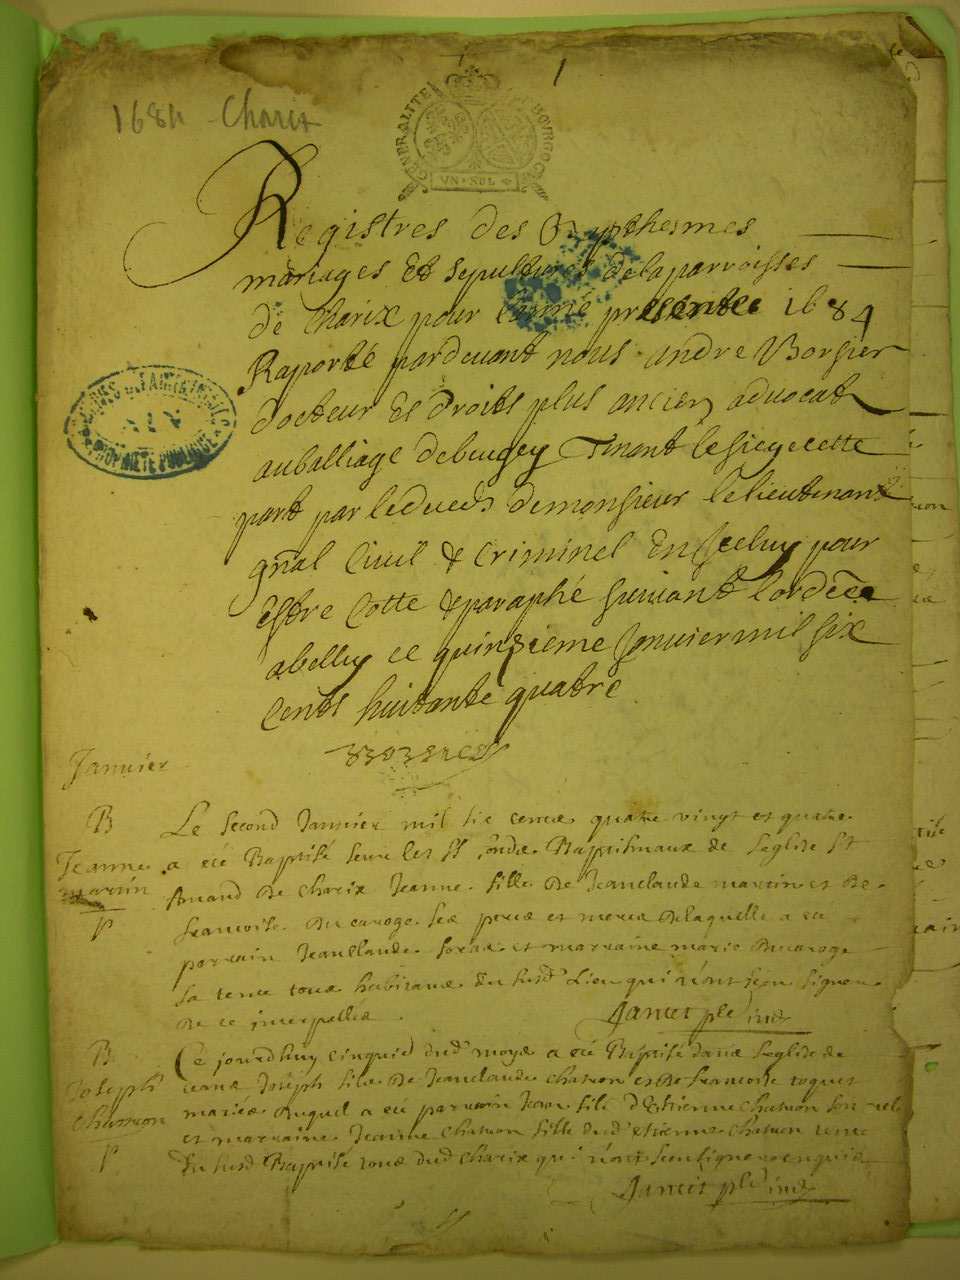 1
1684 Charix
GENERALITE BOURGOG
UN · SOL
Registres des Bapthesmes
mariages Et sepultures de la parroisses
de Charix pour lanné presentée 1684
Raporté pardevant nous andre Borsier
docteur Es droits plus ancien advocat
au balliage de bugey Tenant le siege cette
part par le deceds de monsieur le lieutenant
gñal Civil & Criminel En Iceluy pour
Estre Cotte & paraphé suivant lordce
a belley ce quinsieme Janvier mil six
Cents huitante quatre
PROPRIETE PUBLIQUE
Janvier
B
Le second Janvier mil six cents quatre vingt et quatre
Jeanne
a eté Baptisé sur les st fonds Baptismaux de leglise st
martin
Amand de Charix Jeanne fille de Jeanclaude martin et de
francoise Ducaroge ses pere et mere de laquelle a eté
parrain Jeanclaude et marraine marie Ducaroge
sa tente tous habitans du susd lieu qui n'ont sceu signer
de ce interpellés
Jantet
B
Ce jourdhuy cinquie dud moys a eté Baptisé dans leglise de
Joseph
ceans Joseph fils de Jeanclaude chatron et de francoise
Chatron
mariés Auquel a eté parrain Jean fils d'Estienne Chatron son
et marraine Jeanne Chatron fille dud estienne Chatron
du susd Baptisé tous dud Charix qui n'ont sceu signer enquis
Jantet